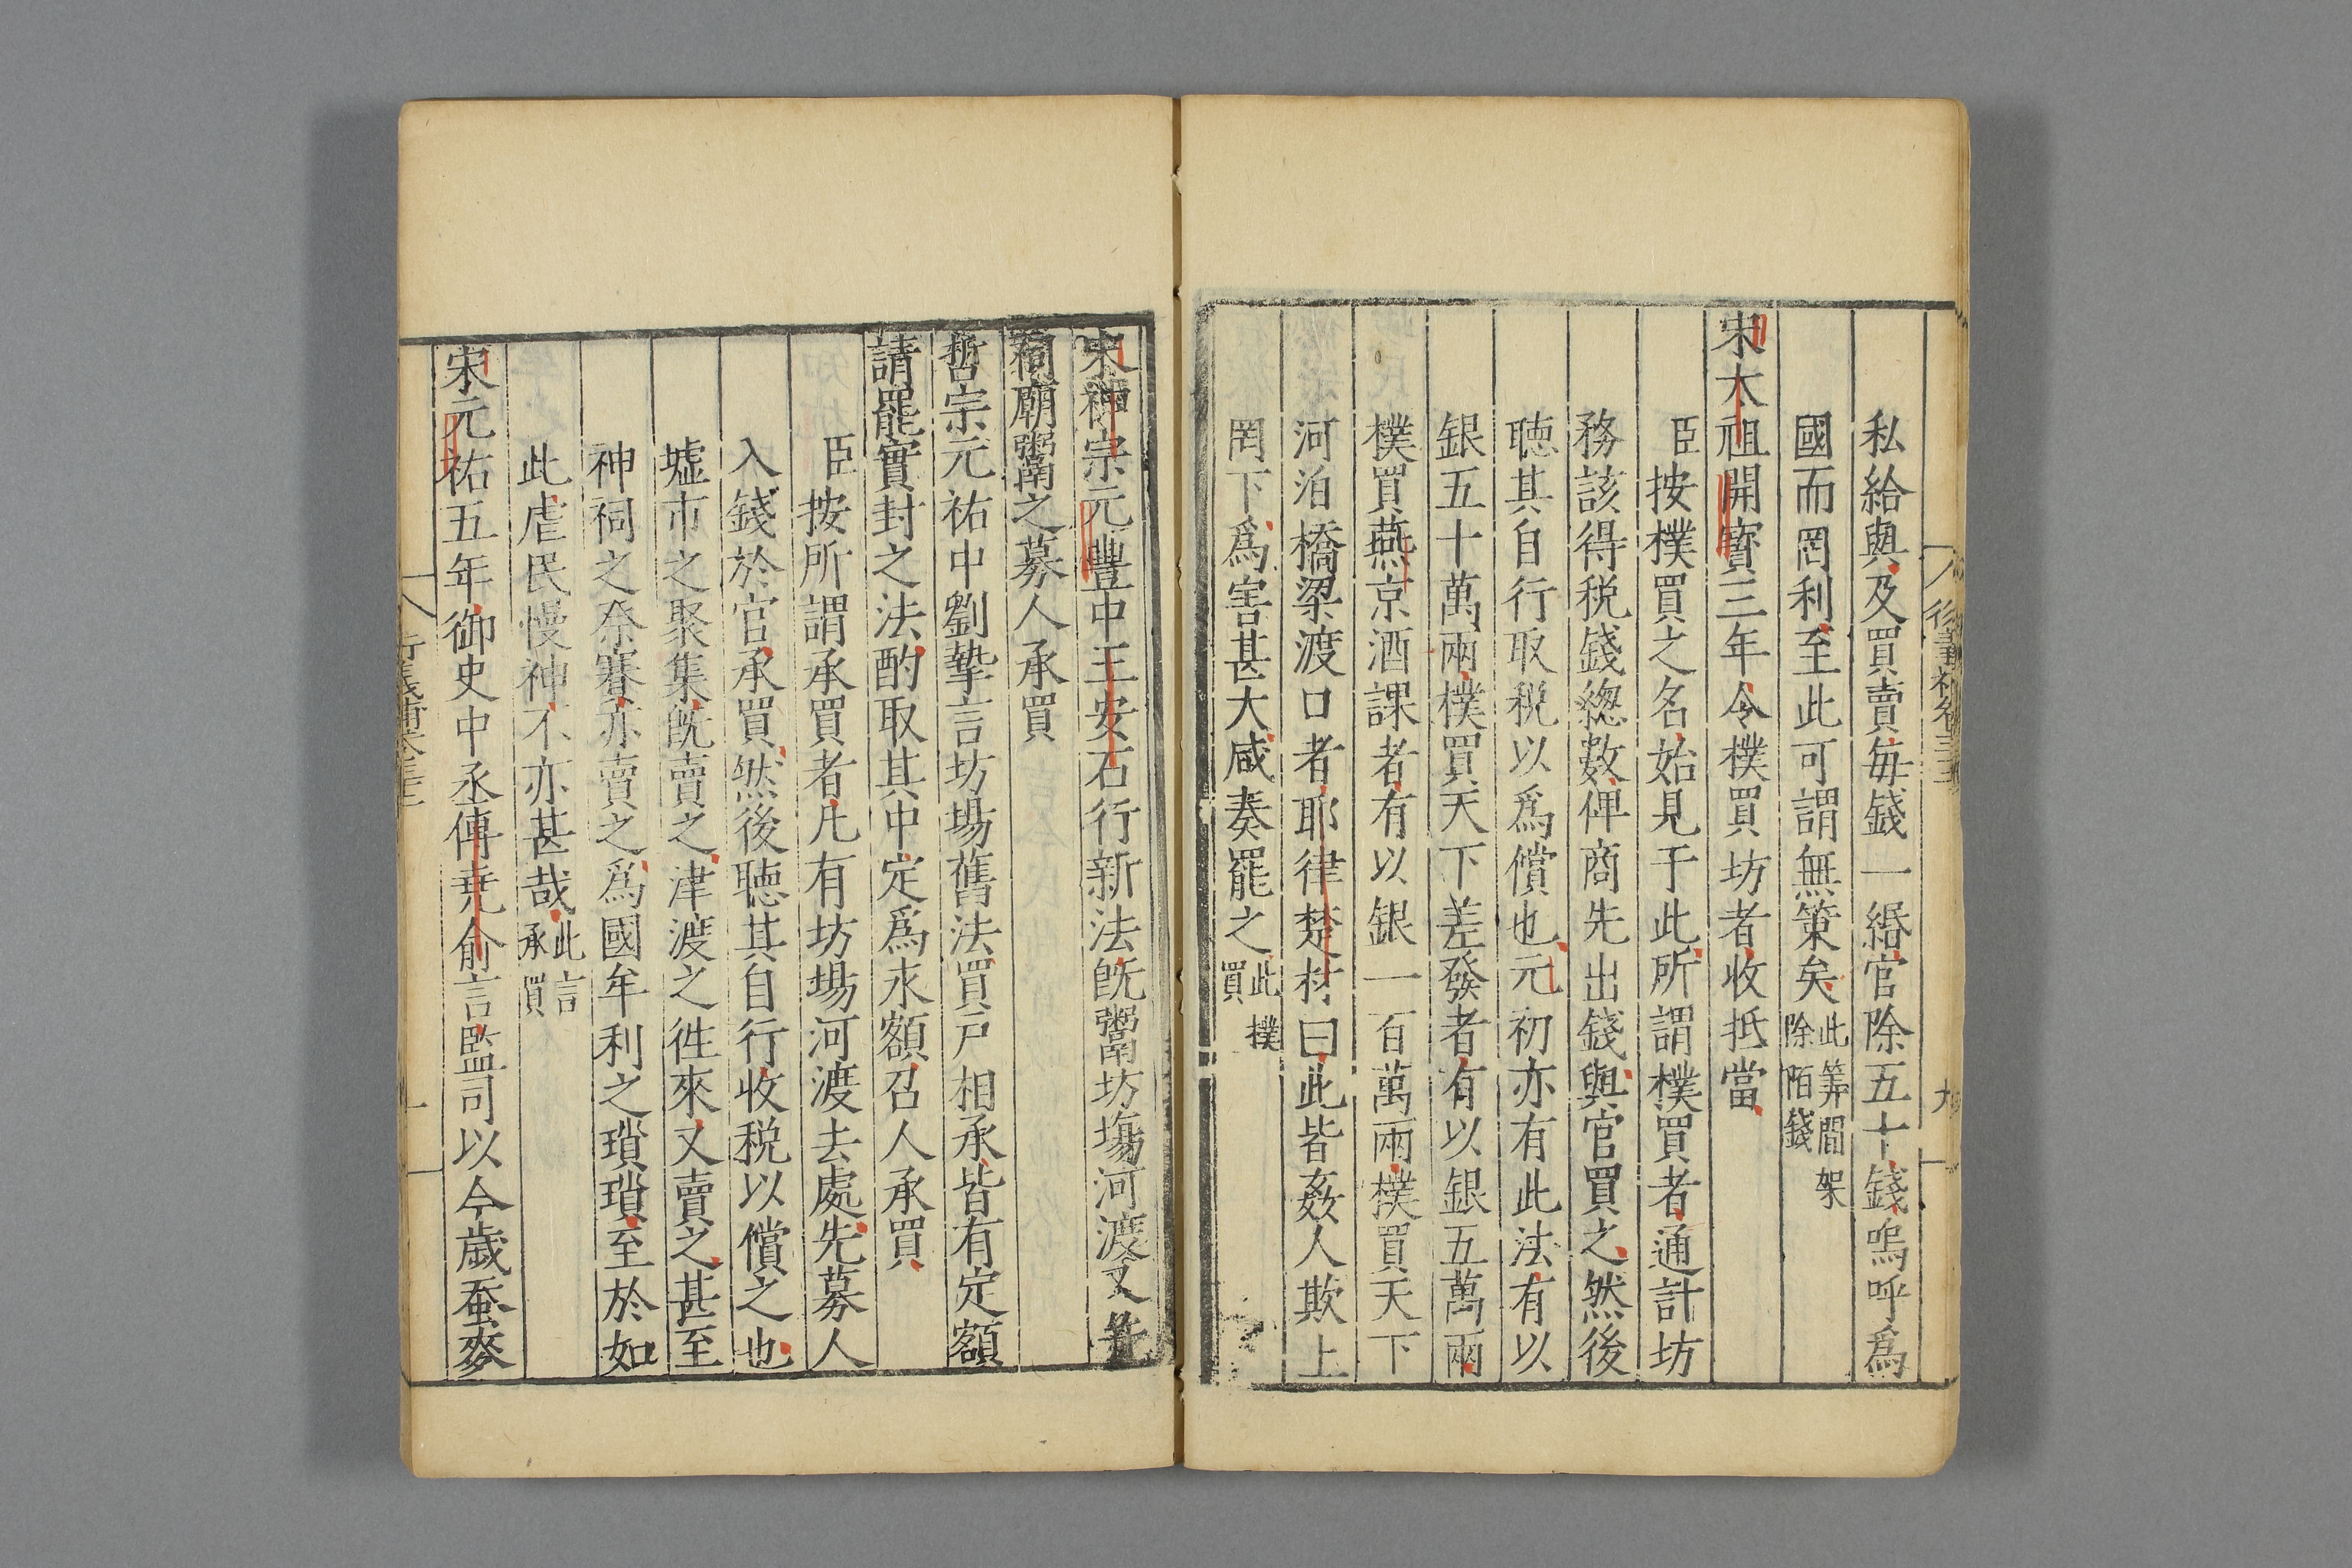 私給與及買賣每錢一緡官除五十錢嗚呼爲
國而罔利至此可謂無策矣此筭間架除陌錢
宋太祖開寳三年令樸買坊者收抵當
臣按樸買之名始見于此所謂樸買者通計坊
務該得税錢緫數俾商先出錢與官買之然後
聴其自行取税以爲償也元初亦有此法有以
銀五十萬兩樸買天下差發者有以銀五萬兩
樸買燕京酒課者有以銀一百萬兩樸買天下
河泊橋梁渡口者耶律楚材曰此皆姦人欺上
罔下爲害甚大咸奏罷之此樸買
宋神宗元豐中王安石行新法旣鬻坊塲河渡又并
祠廟鬻之募人承買
哲宗元祐中劉摯言坊塲舊法買戸相承皆有定額
請罷實封之法酌取其中定爲永額召人承買
臣按所謂承買者凡有坊塲河渡去處先募人
入錢於官承買然後聴其自行收税以償之也
墟市之聚集旣賣之津渡之徃來又賣之甚至
神祠之祭賽亦賣之爲國牟利之瑣瑣至於如
此虐民慢神不亦甚哉此言承買
宋元祐五年御史中丞傅堯俞言監司以今歲蚕麥